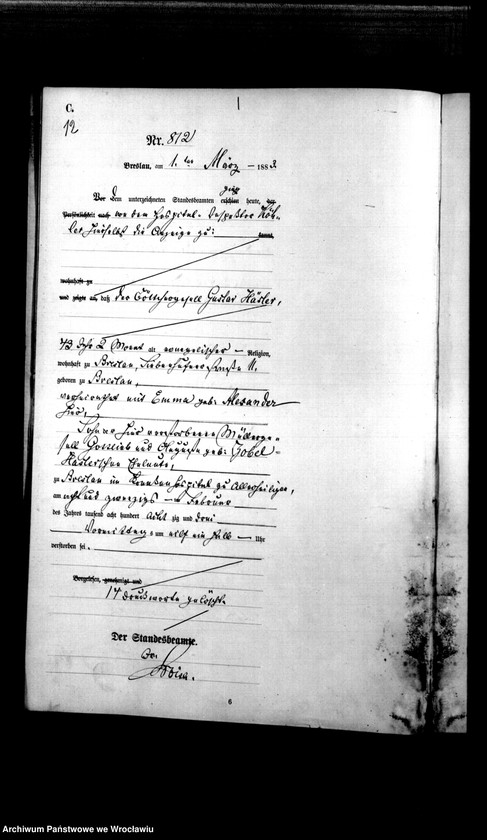 C.
12
Nr. 812
Breslau, am 1. ten März 1883.
Vor dem unterzeichneten Standesbeamten erschien heute, der
ging
Persönlichkeit nach von dem Hospital-Inspektor
hierselbst die Anzeige zu: kannt,
wohnhaft zu
und zeigte an, daß der Böttchergesell Gustav Häsler,
43 Jahr 2 Monat alt evangelischer Religion,
wohnhaft zu Breslau, 11.
geboren zu Breslau,
verheirathet mit Emma geb. Alexander
hier,
Sohn der hier verstorbenen Müllerge-
sell Gottlieb und Auguste geb. Zobel-
Häslerschen Eheleute,
zu Breslau im Krankenhospital zu Allerheiligen,
am acht und zwanzigsten Februar
des Jahres tausend acht hundert acht zig und drei
Vormittags um elf ein halb Uhr
verstorben sei.
Vorgelesen, genehmigt und
17 Druckworte gelöscht.
Der Standesbeamte.
6
Archiwum Państwowe we Wrocławiu